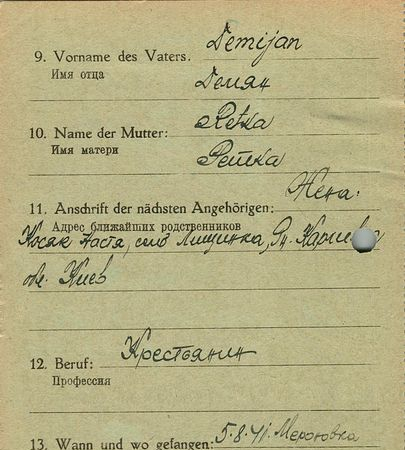 Demijan
9. Vorname des Vaters:
Имя отца
Демян
Retka
10. Name der Mutter:
Имя матери
Ретка
Жена:
11. Anschrift der nächsten Angehörigen:
Адрес ближайших родственников
Косяк Настя, село Лищинка,
обл. Киев
12. Beruf: Крестьянин
Профессия
13. Wann und wo gefangen: 5.8.41. Мероновка